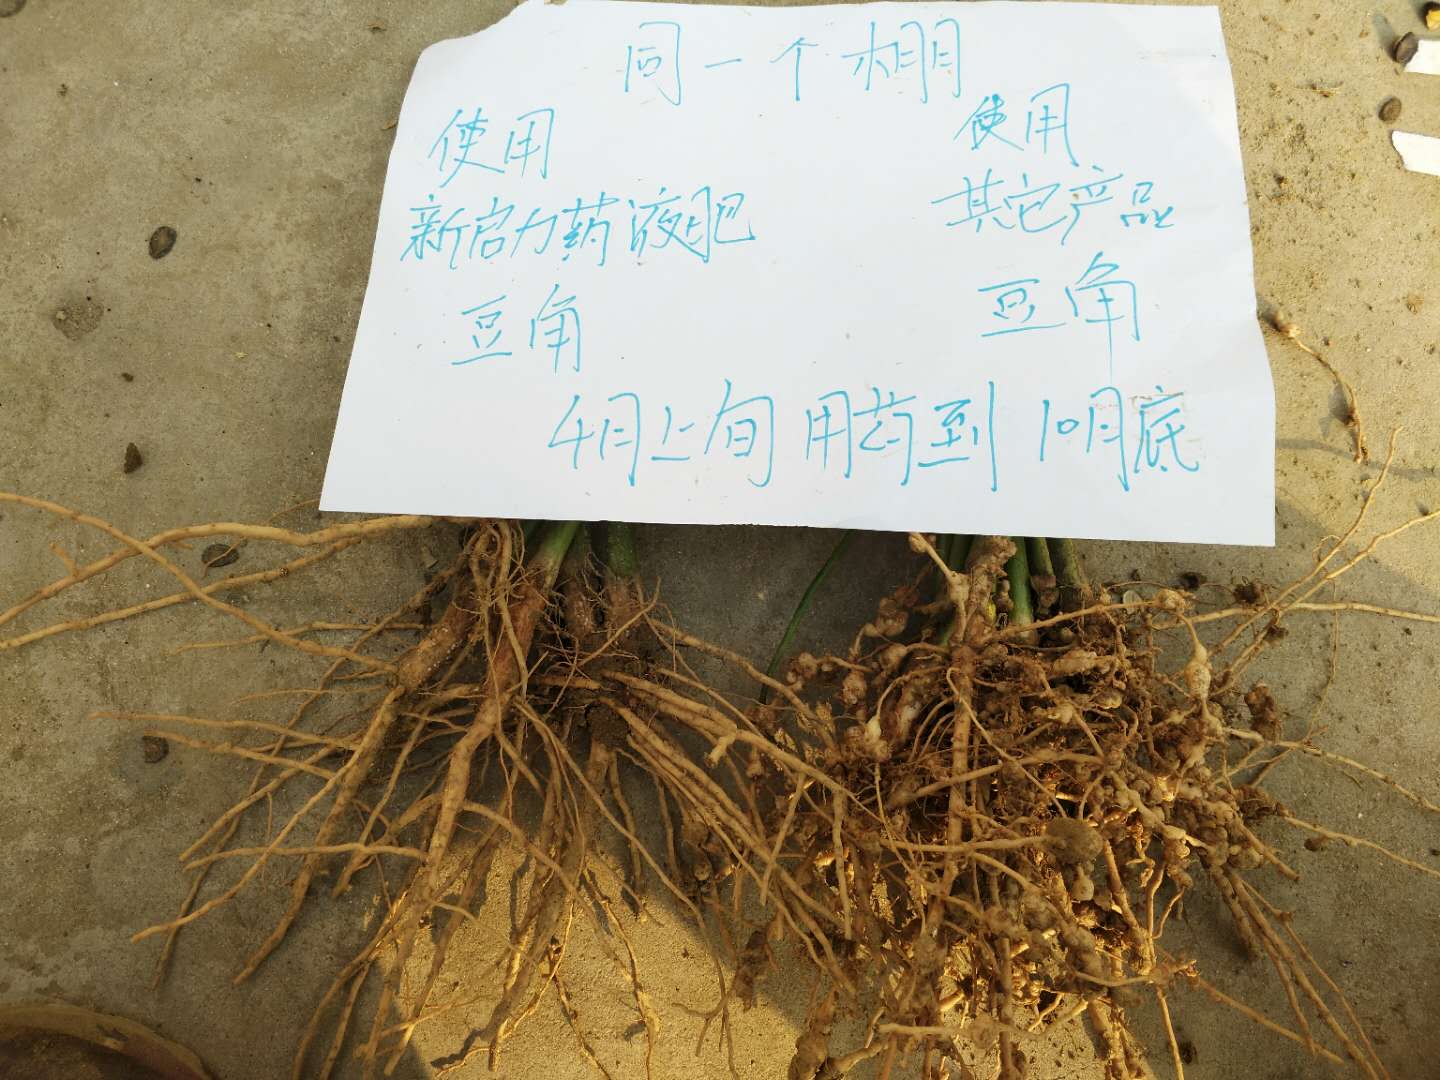 同一个棚
使用
新启力药液肥
豆角
使用
其它产品
豆角
4月上旬用药到10月底